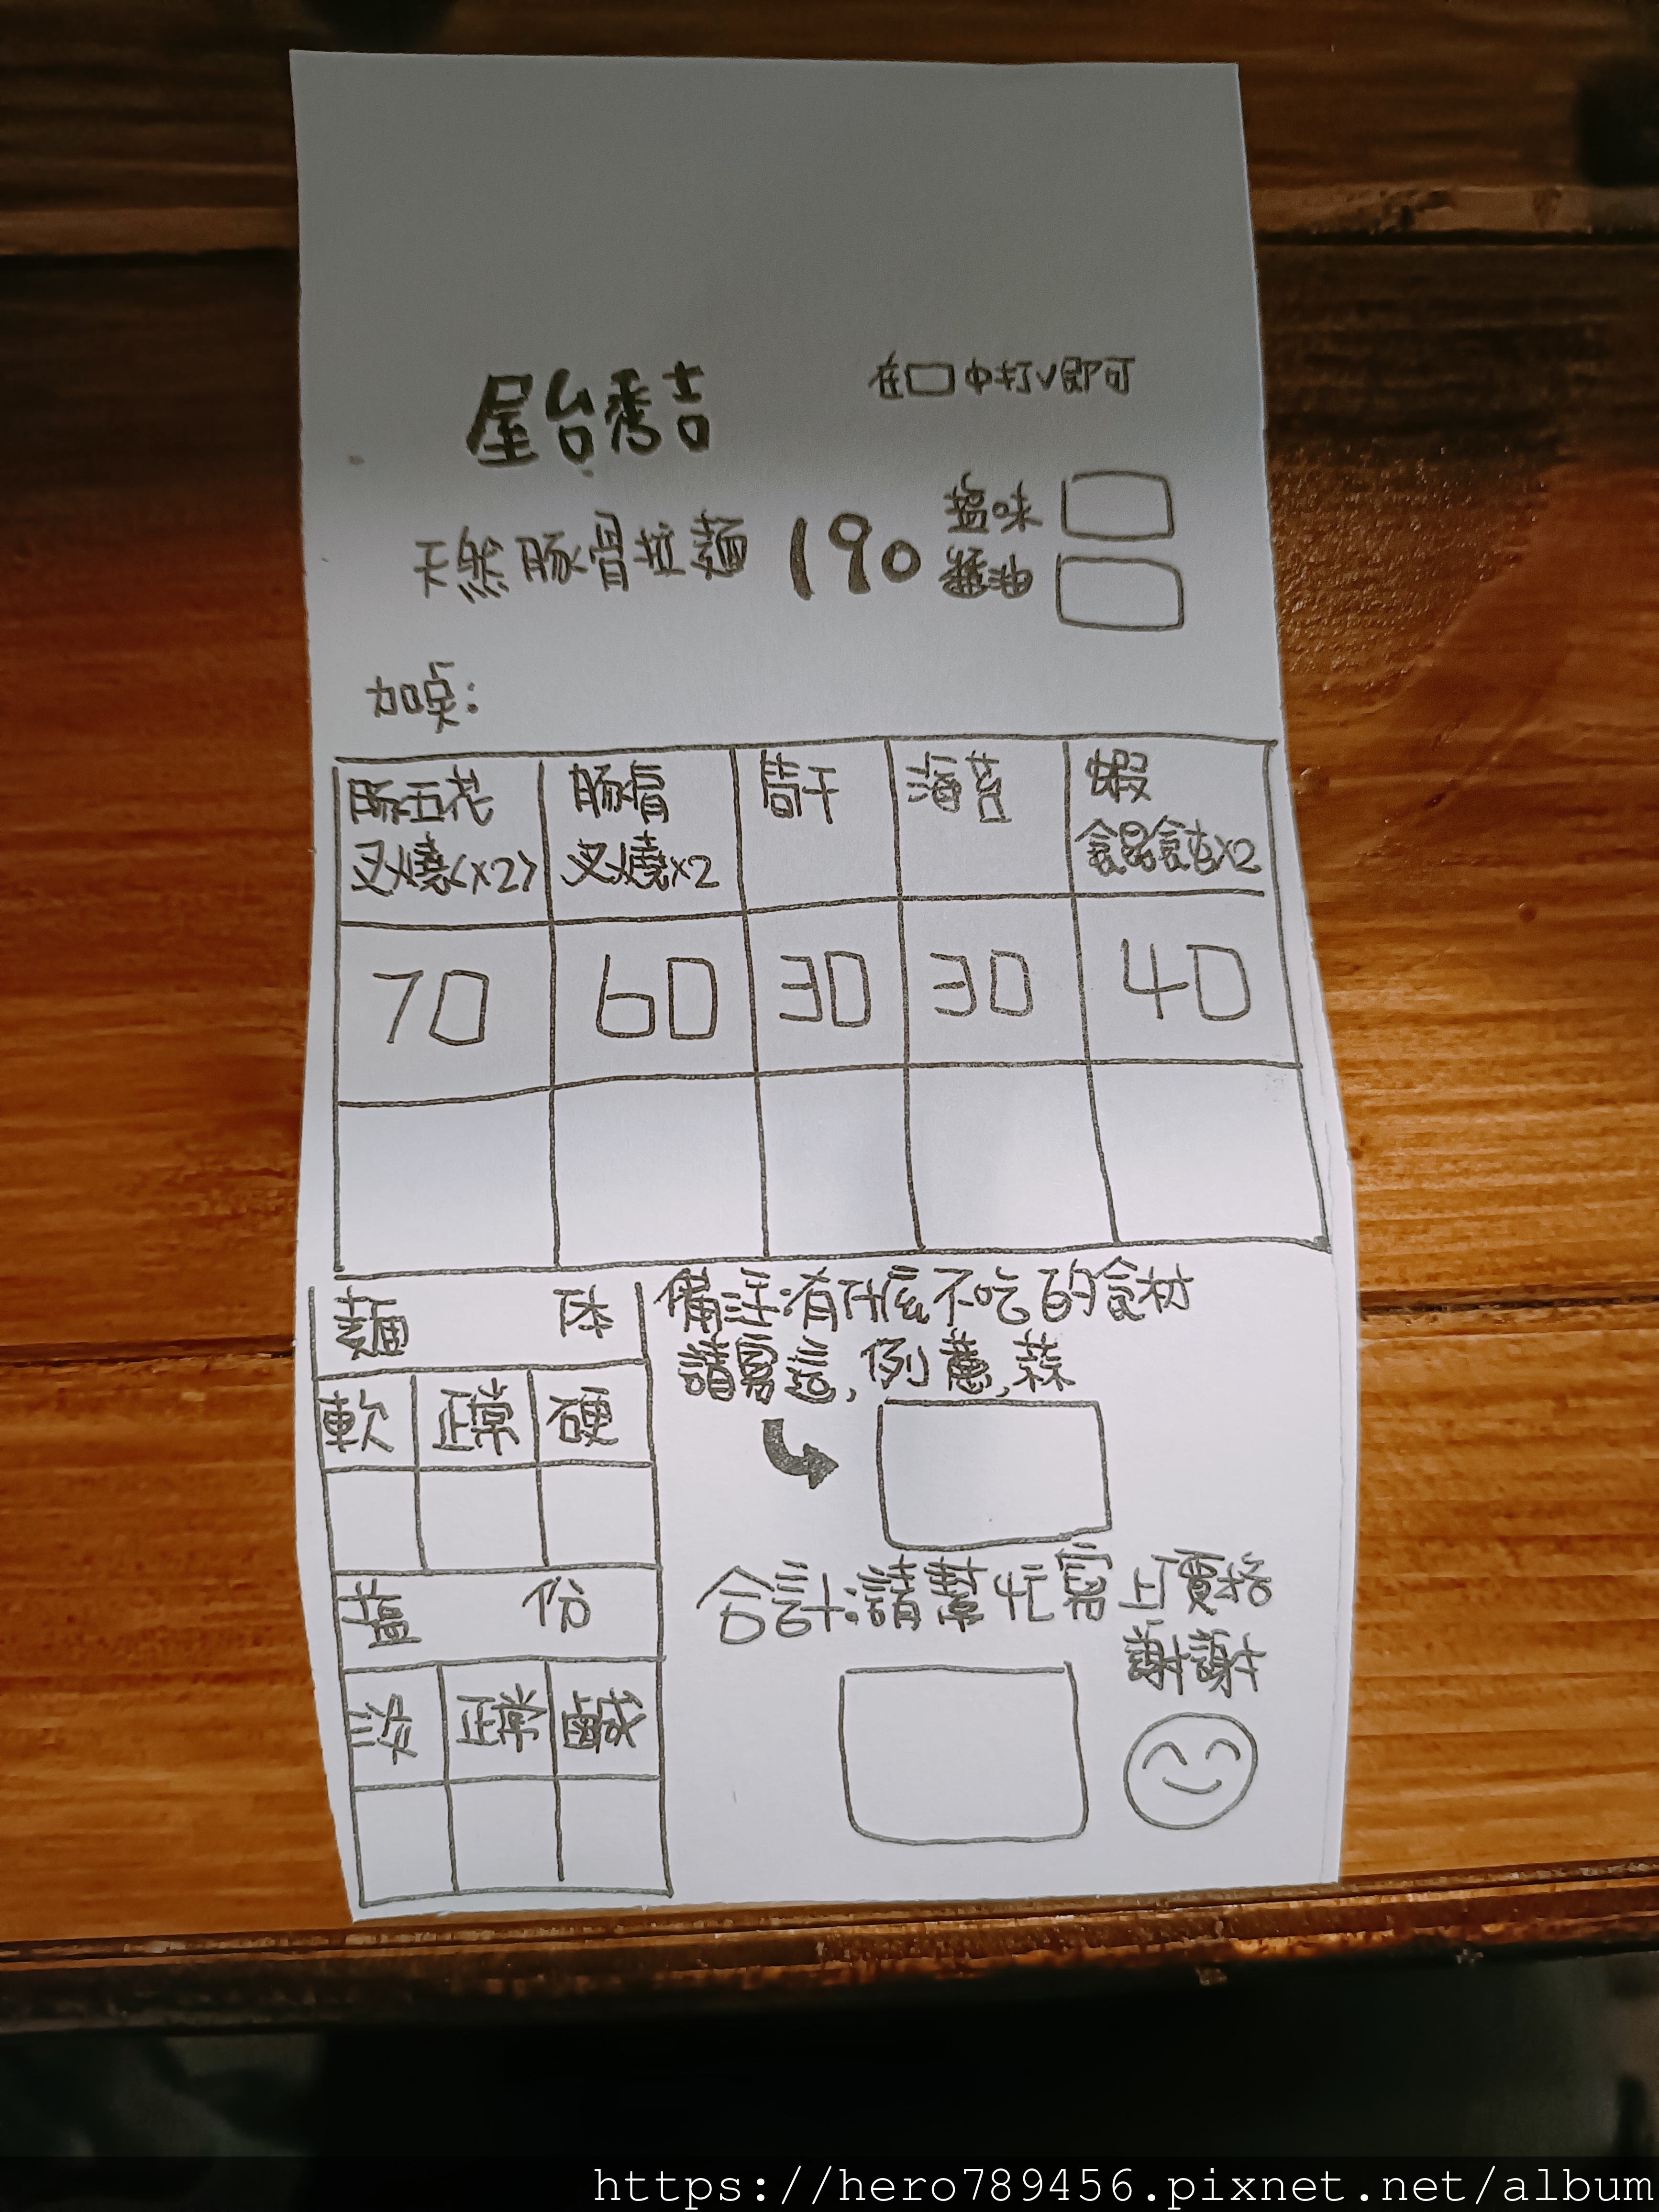 屋台秀吉
在口中打V即可
天然豚骨拉麵 190
塩味
醬油
加点:
豚五花
叉燒(x2)
豚肩
叉燒x2
筍干
海苔
蝦
餛飩x2
70 60 30 30 40
麵 体
軟 正常 硬
塩 份
淡 正常 鹹
備註:有什麼不吃的食材
請寫這,例蔥,蒜
合計:請幫忙寫上價格
謝謝
https://hero789456.pixnet.net/album